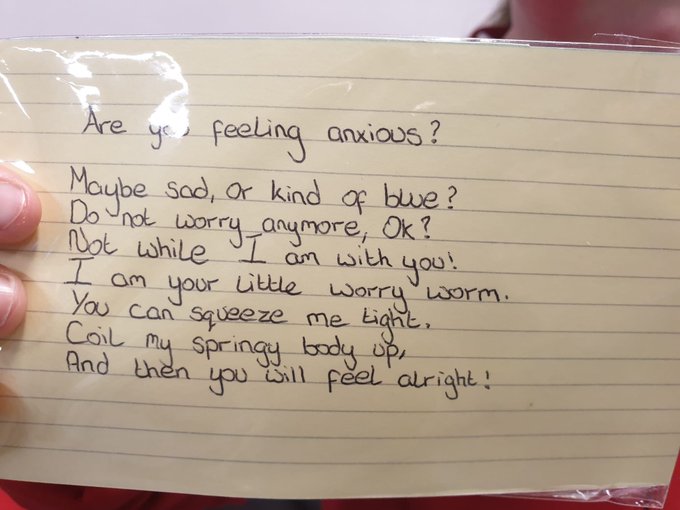 Are you feeling anxious?
Maybe sad, or kind of blue?
Do not worry anymore, Ok?
Not while I am with you!
I am your little worry worm.
You can squeeze me tight.
Coil my springy body up,
And then you will feel alright!